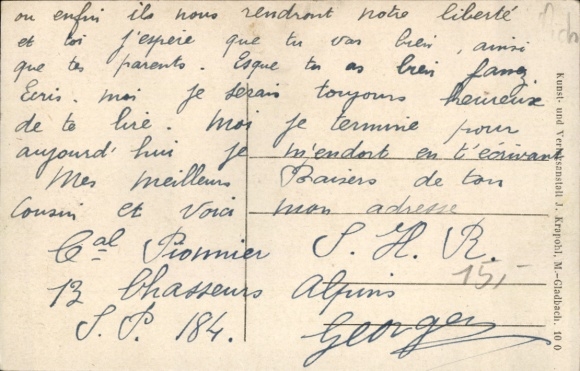 ou enfin ils nous rendront notre liberté
et toi j'espère que tu vas bien, ainsi
que tes parents. Esque tu as bien
Ecris. moi je serais toujours heureuse
de te lire. Moi je termine pour
aujourd'hui je m'endort en t'écrivan
Mes meilleurs Baisers de ton
Cousin et voici mon adresse
Cal Pionnier S. H. R.
13 Chasseurs Alpins
S. P. 184.
Georges
15,-
Kunst- und Verlagsanstalt J. Krapohl, M.-Gladbach. 10 0